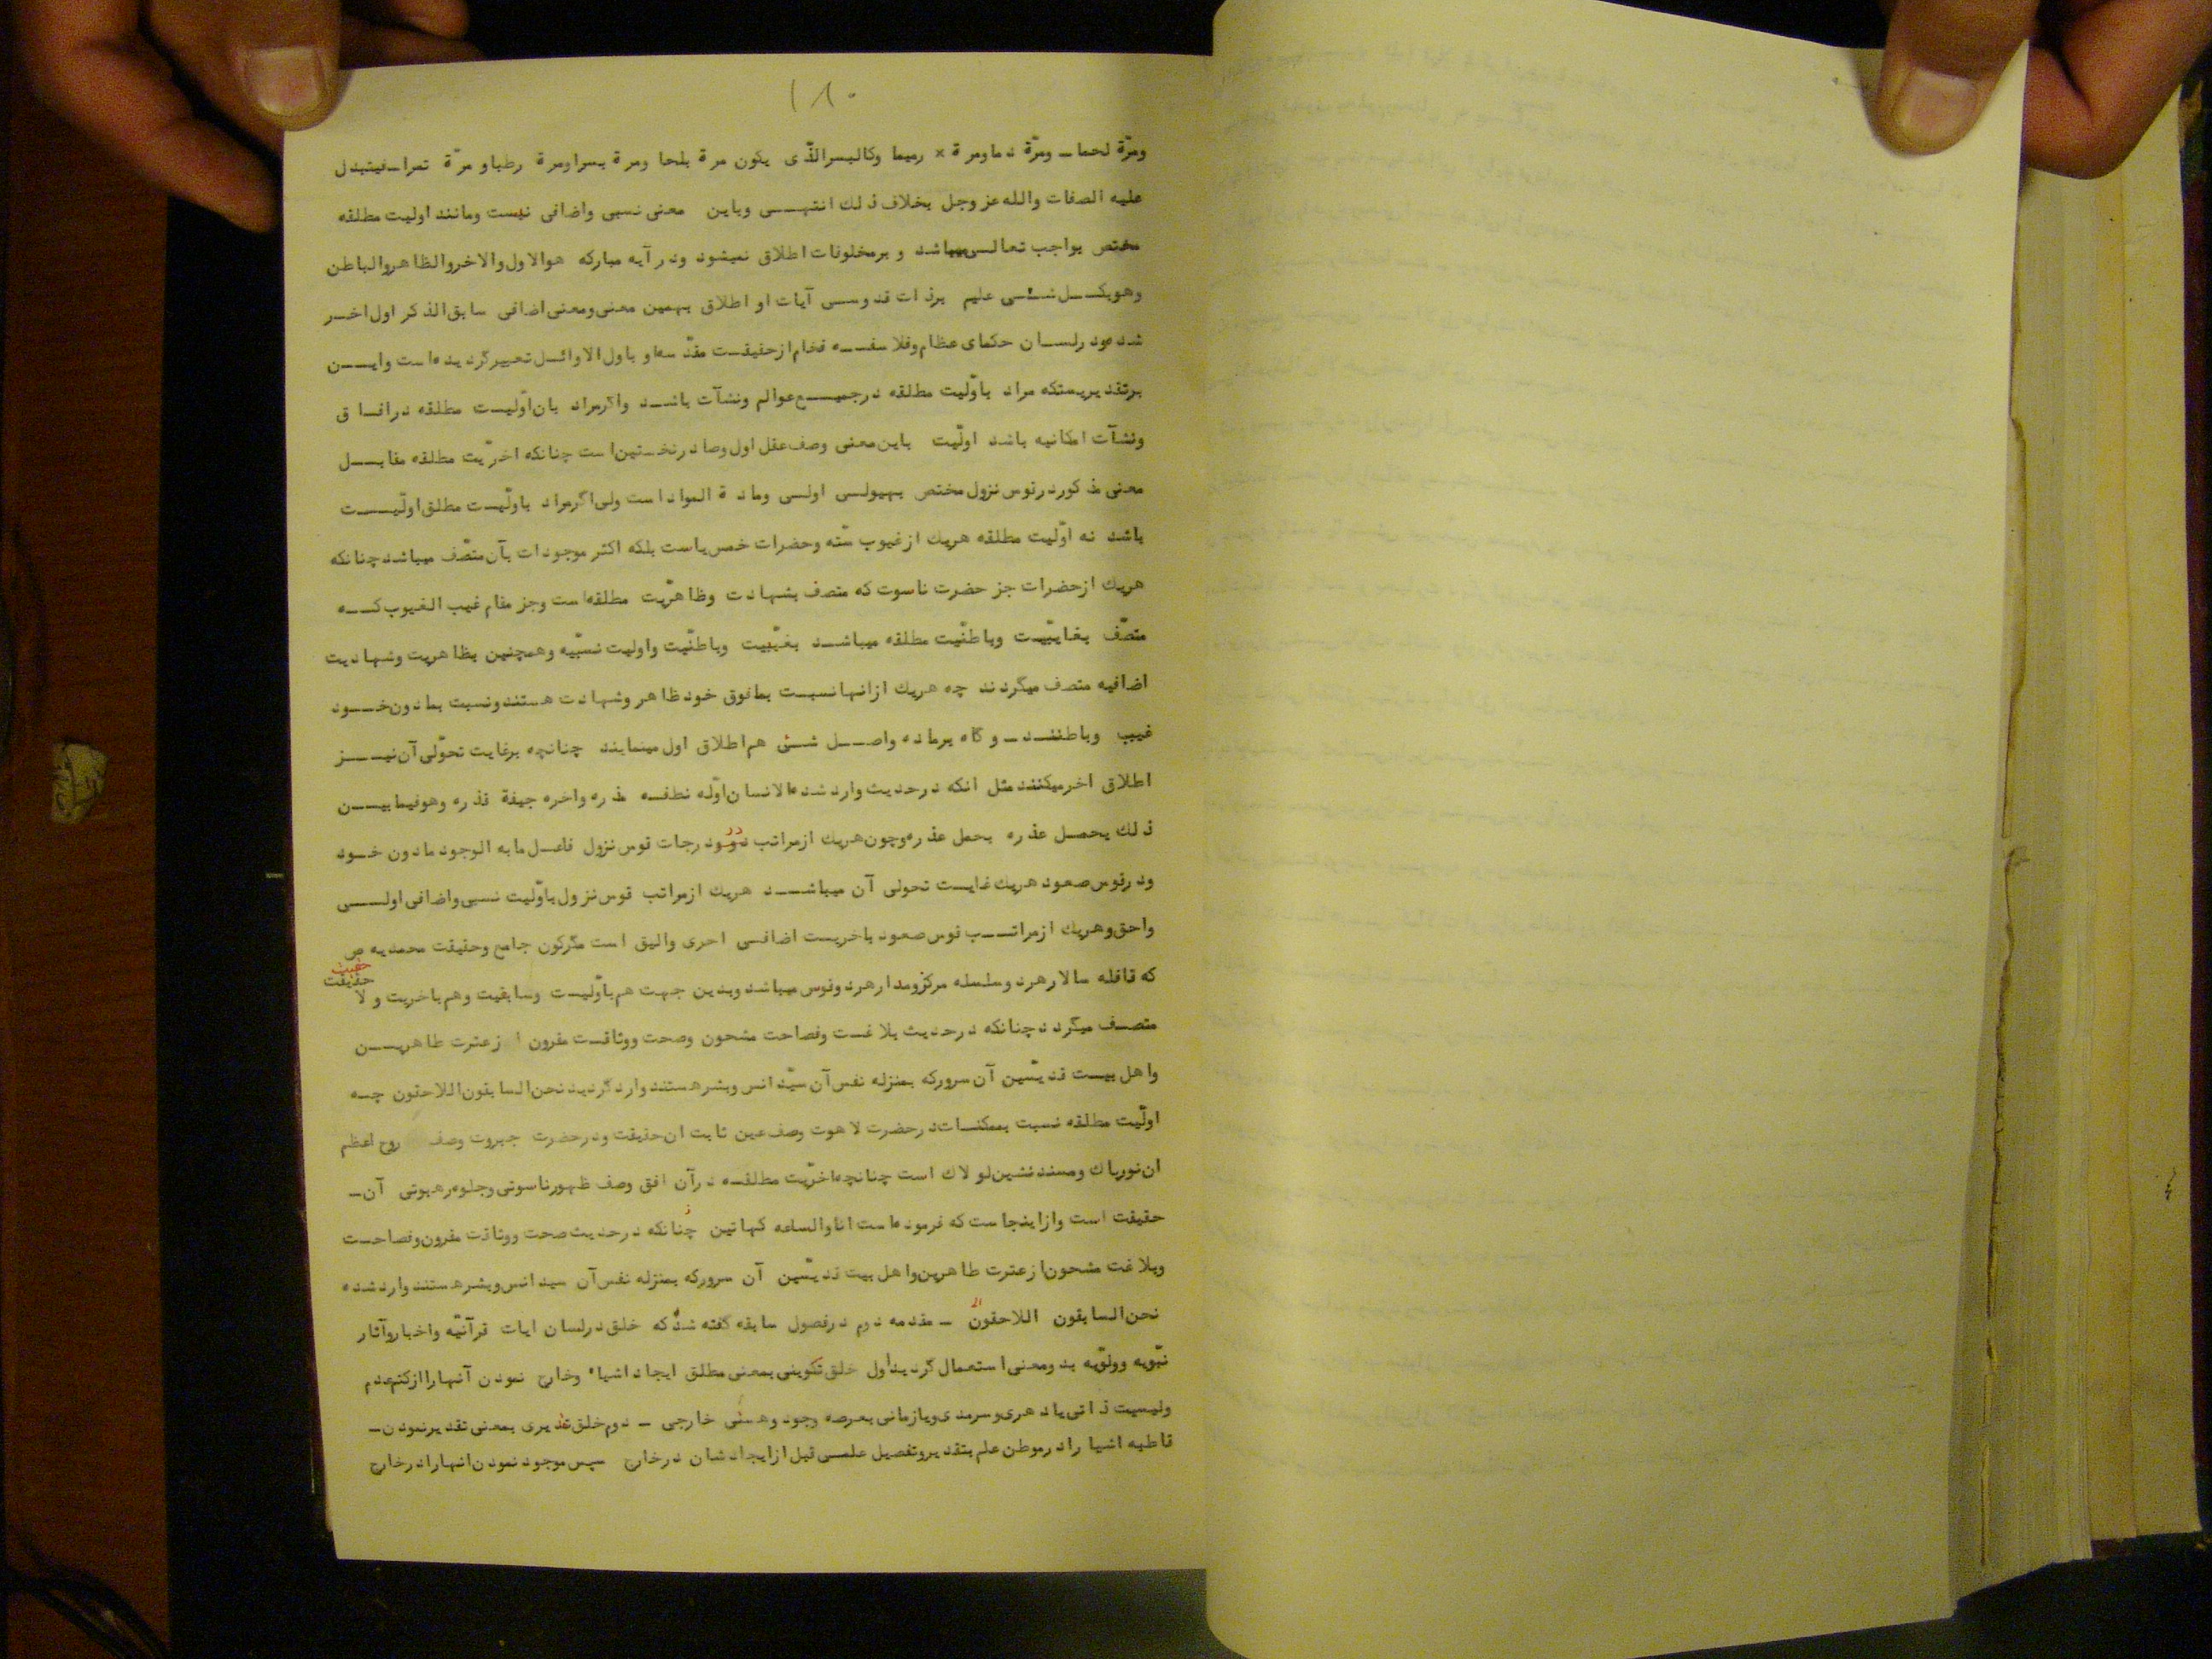 ۱۸۰
ومرّة لحما ـ ومرّة دما ومرة × رمیما وکالبسر الذّی یکون مرة بلحا ومرة بسرا ومرة رطبا و مرّة تمرا ـ فیتبدل
علیه الصفات والله عز وجل بخلاف ذلك انتهــی وباین معنی نسبی واضافی نیست ومانند اولیت مطلقه
مختص بواجب تعالی میباشد و برمخلوقات اطلاق نمیشود ودر آیه مبارکه هوالاول والاخر والظاهر والباطن
وهوبکــل شــئی علیم برذات قدوســی آیات او اطلاق بهمین معنی ومعنی اضافی سابق الذکر اول اخــر
شده ودر لســان حکمای عظام وفلاسفــه فخام ازحقیقــت مقدّسه او باول الاوائــل تعبیر گردیده است وایــن
برتقدیریستکه مراد باوّلیت مطلقه درجمیــع عوالم ونشآت باشــد واگر مراد بان اوّلیــت مطلقه درافــاق
ونشآت امکانیه باشد اولّیت باین معنی وصف عقل اول وصادر نخستین است چنانکه اخرّیت مطلقه مقابــل
معنی مذکور در قوس نزول مختص بهیولــی اولــی ومادة المواد است ولی اگر مراد باولّیــت مطلق اولّیــت
باشد نه اوّلیت مطلقه هریك از غیوب ستّه وحضرات خمس یاست بلکه اکثر موجودات بآن متصّف میباشد چنانکه
هریك ازحضرات جز حضرت ناسوت که متصف بشهادت وظاهرّیت مطلقه است وجز مقام غیب الغیوب کــه
متصّف بغایبیّــت وباطنّیت مطلقه میباشــد بغیّبیت وباطنّیت واولیت نسبّیه وهمچنین بظاهریت وشهادیت
اضافیه متصف میگردند چه هریك ازانها نسبــت بمافوق خود ظاهر وشهادت هستند ونسبت بمادون خــود
غیبب وباطننــد ـ و گاه برماده واصــل شــئی هم اطلاق اول مینمایند چنانچه برغایت تحوّلی آن نیــز
اطلاق اخر میکنند مثل انکه درحدیث وارد شده الانسان اوّله نطفــه مذره واخره جیفة قذره وهو فیما بیــن
ذلك یحصــل عذره یحمل عذره وچون هریك ازمراتب در ودرجات قوس نزول فاعــل مابه الوجود مادون خــود
ودرقوس صعود هریك غایــت تحولی آن میباشــد هریك ازمراتب قوس نزول باوّلیت نسبی واضافی اولــی
واحق وهریك ازمراتــب قوس صعود باخریــت اضافــی احری والیق است مگر کون جامع وحقیقت محمدیه ص
که قافله سالار هردو سلسله مرکز ومدار هردو قوس میباشد وبدین جهت هم باوّلیــت وسابقیت وهم باخریت و لا حقیقت
متصــف میگردد چنانکه درحدیث بلاغــت وفصاحت مشحون وصحت ووثاقــت مقرون از عترت طاهریــن
واهل بیــت قدیسّین آن سرورکه بمنزله نفس آن سیّد انس وبشر هستند وارد گردید نحن السابقون اللاحقون چــه
اولّیت مطلقه نسبت بممکنــات درحضرت لاهوت وصف عین ثابت ان حقیقت ودرحضرت جبروت وصف روح اعظم
ان نور پاك ومسند نشین لو لاك است چنانچه اخرّیت مطلقــه درآن افق وصف ظهور ناسوتی وجلوه رهبوتی آن ـ
حقیقت است وازاینجاست که فرموده است انا والساعه کهاتین چنانکه درحدیث صحت ووثاقت مقرون وفصاحــت
وبلاغت مشحون ازعترت طاهرین واهل بیت قدیسّین آن سرورکه بمنزله نفس آن سید انس وبشر هستند وارد شده
نحن السابقون اللاحقون ـ مقدمه دوم درفصول سابقه گفته شد که خلق درلسان ایات قرآنیّه واخبار وآثار
نبّویه وولوّیه بدومعنی استعمال گردید اول خلق تکوینی بمعنی مطلق ایجاد اشیاء وخارج نمودن آنها را ازکتم عدم
ولیسیت ذاتی یا دهری وسرمدی ویا زمانی بعرصه وجود وهستی خارجی ـ دوم خلق تقدیری بمعنی تقدیر نمودن ـ
قاطبه اشیا رادرموطن علم بتقدیر وتفصیل علمــی قبل ازایجادشان درخارج سپس موجود نمودن انهارا درخارج